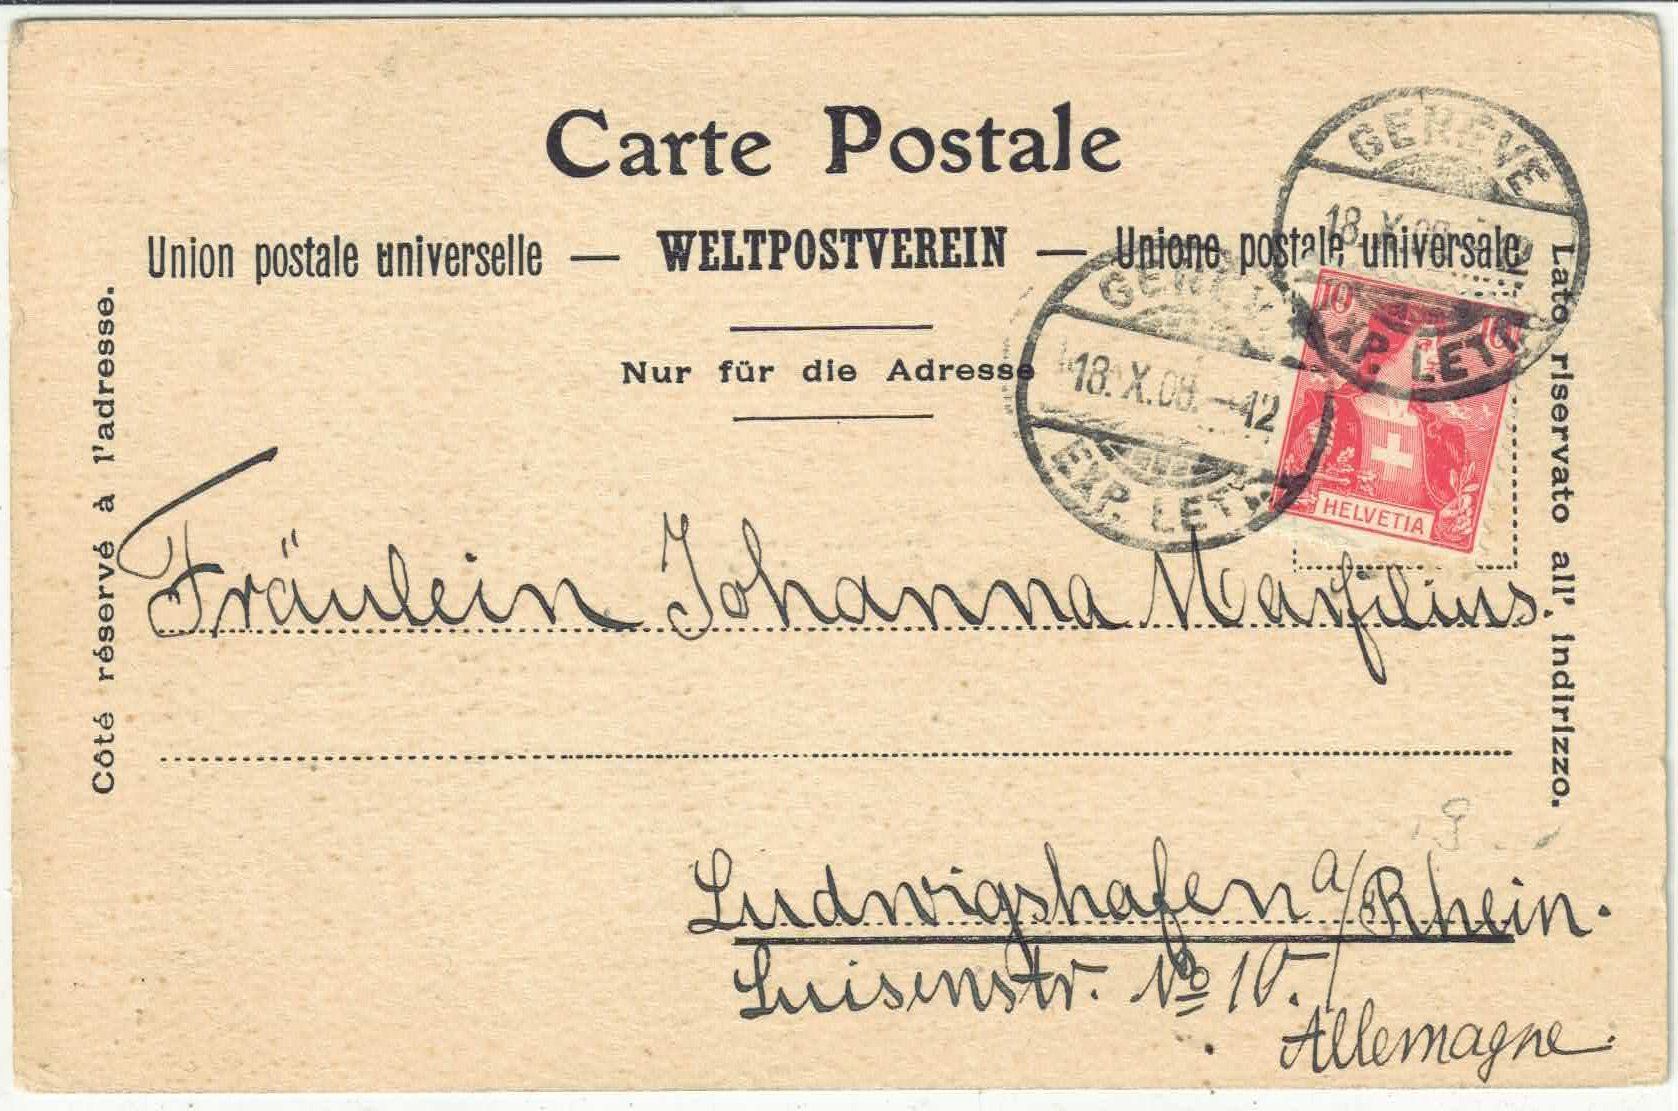 Carte Postale
Union postale universelle — WELTPOSTVEREIN — Unione postale universale
Nur für die Adresse
Côté réservé à l'adresse.
Lato riservato all' indirizzo.
GENÈVE
18. X. 08.
EXP. LETT.
GENÈVE
18. X. 08. —12
EXP. LETT.
10 10
HELVETIA
Fräulein Johanna Marfilius.
Ludwigshafen a/Rhein.
Luisenstr. No 10.
Allemagne.